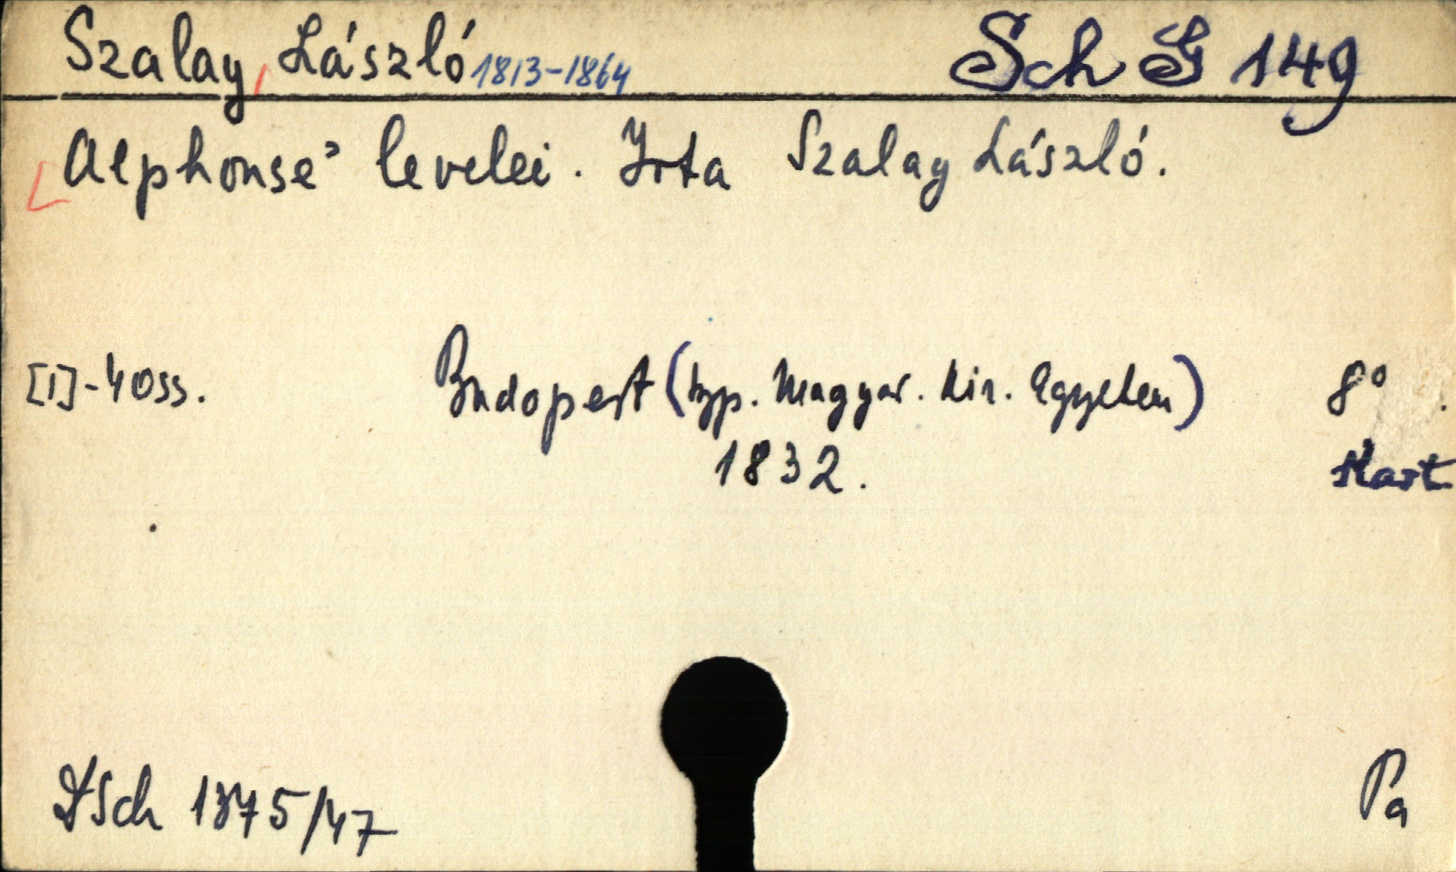 Szalay, László 1813-1864 Sch G 149
Alphonse' levelei. Irta Szalay László.
[1]-40ss. Budapest (typ. Magyar. Kir. Egyetem) 8°
1832. Kart
DSch 1375/47 Pa